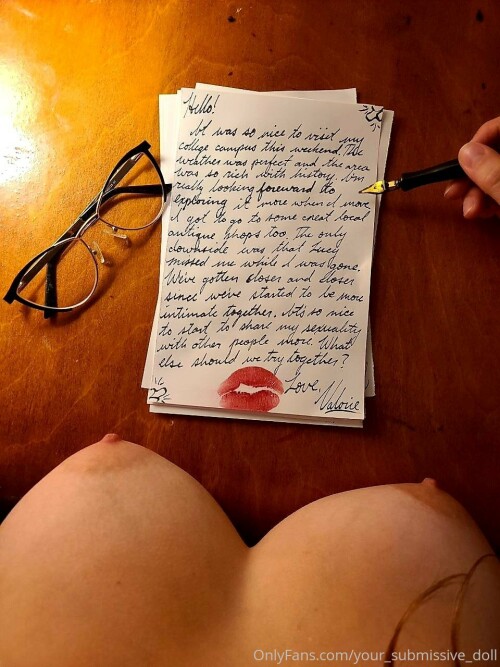 Hello!
It was so nice to visit my
college campus this weekend. The
weather was perfect and the area
was so rich with history. I'm
really looking foreward to
exploring it more when I move.
I got to go to some great local
antique shops too. The only
downside was that Lucy
missed me while I was gone.
We've gotten closer and closer
since we've started to be more
intimate together. It's so nice
to start to share my sexuality
with other people more. What
else should we try together?
Love,
Valorie
OnlyFans.com/your_submissive_doll